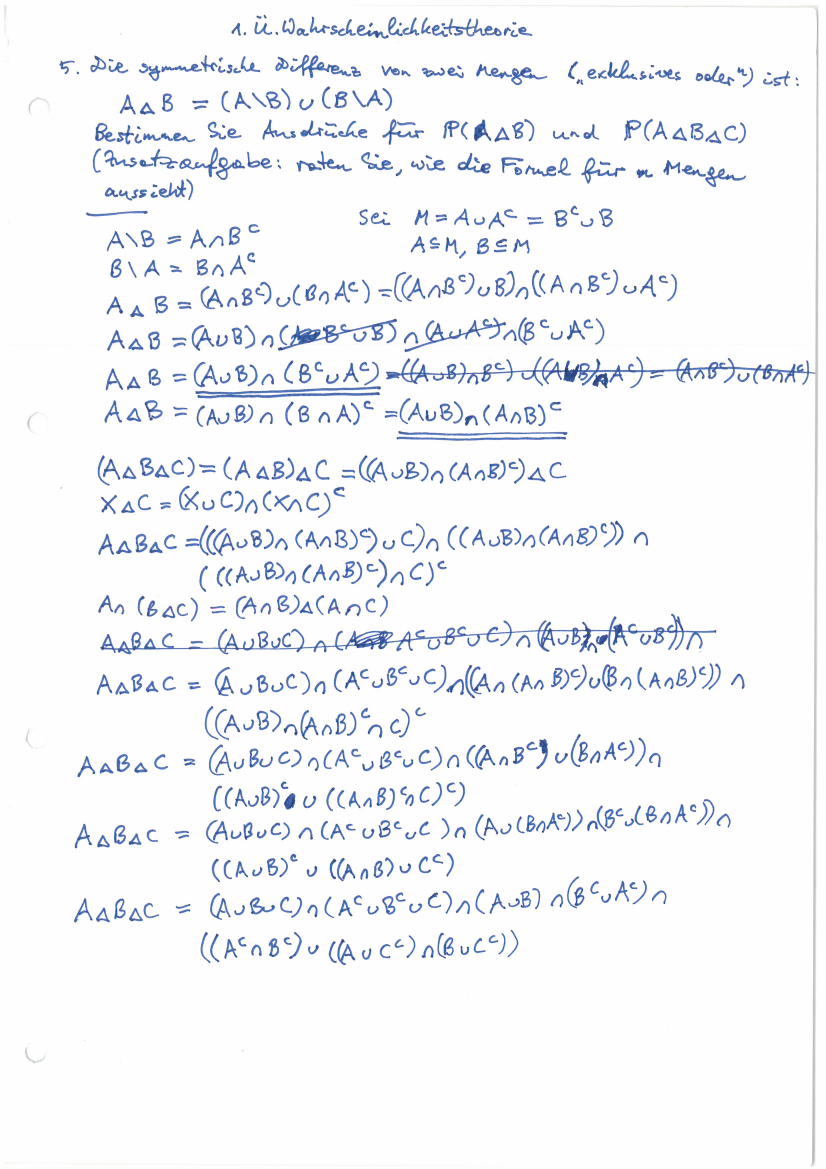 1. Ü. Wahrscheinlichkeitstheorie
5. Die symmetrische Differenz von zwei Mengen („exklusives oder") ist:
A △ B = (A\B) ∪ (B\A)
Bestimmen Sie Ausdrücke für ℙ(A△B) und ℙ(A△B△C)
(Zusatzaufgabe: raten Sie, wie die Formel für n Mengen
aussieht)
A\B = A∩Bᶜ Sei M = A∪Aᶜ = Bᶜ∪B
B\A = B∩Aᶜ A⊆M, B⊆M
A △ B = (A∩Bᶜ)∪(B∩Aᶜ) = ((A∩Bᶜ)∪B)∩((A∩Bᶜ)∪Aᶜ)
A△B = (A∪B)∩(Bᶜ∪B)∩(A∪Aᶜ)∩(Bᶜ∪Aᶜ)
A△B = (A∪B)∩(Bᶜ∪Aᶜ) = ((A∪B)∩Bᶜ)∪((A∪B)∩Aᶜ) = (A∩Bᶜ)∪(B∩Aᶜ)
A△B = (A∪B)∩(B∩A)ᶜ = (A∪B)∩(A∩B)ᶜ
(A△B△C) = (A△B)△C = ((A∪B)∩(A∩B)ᶜ)△C
X△C = (X∪C)∩(X∩C)ᶜ
A△B△C = (((A∪B)∩(A∩B)ᶜ)∪C)∩((A∪B)∩(A∩B)ᶜ)) ∩
(((A∪B)∩(A∩B)ᶜ)∩C)ᶜ
A∩(B△C) = (A∩B)△(A∩C)
A△B△C = (A∪B∪C)∩(Aᶜ∪Bᶜ∪C)∩(A∪B)∩(Aᶜ∪Bᶜ))∩
A△B△C = (A∪B∪C)∩(Aᶜ∪Bᶜ∪C)∩((A∩(A∩B)ᶜ)∪(B∩(A∩B)ᶜ)) ∩
((A∪B)∩(A∩B)ᶜ∩C)ᶜ
A△B△C = (A∪B∪C)∩(Aᶜ∪Bᶜ∪C)∩((A∩Bᶜ)∪(B∩Aᶜ))∩
((A∪B)ᶜ∪((A∩B)ᶜ∩C)ᶜ)
A△B△C = (A∪B∪C)∩(Aᶜ∪Bᶜ∪C)∩(A∪(B∩Aᶜ))∩(Bᶜ∪(B∩Aᶜ))∩
((A∪B)ᶜ∪((A∩B)∪Cᶜ)
A△B△C = (A∪B∪C)∩(Aᶜ∪Bᶜ∪C)∩(A∪B)∩(Bᶜ∪Aᶜ)∩
((Aᶜ∩Bᶜ)∪((A∪Cᶜ)∩(B∪Cᶜ))